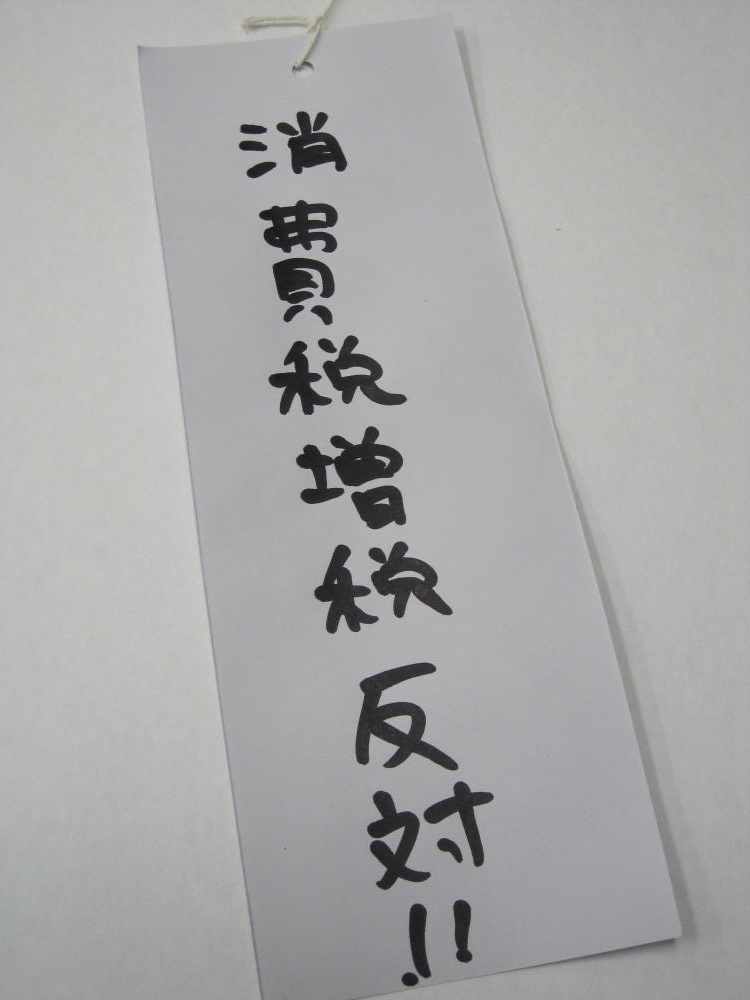 消費税増税反対!!